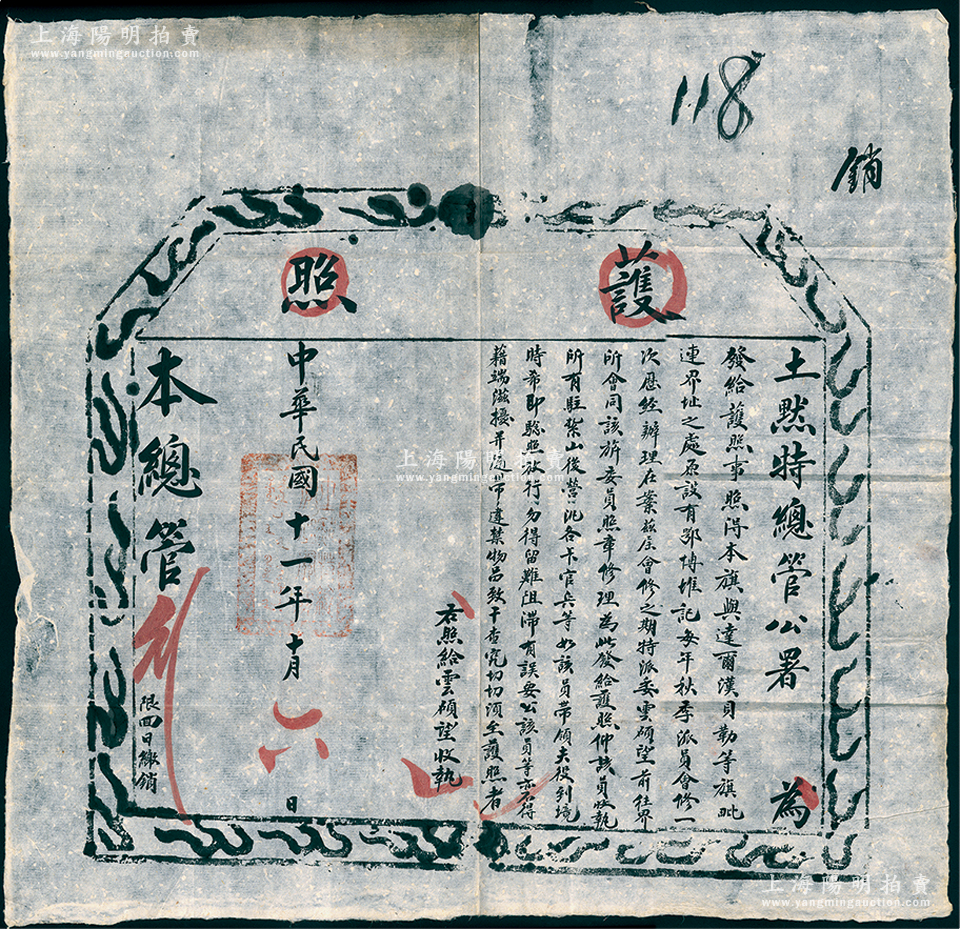 上海陽明拍賣
www.yangmingauction.com
118
銷
護照
土黙特總管公署 為
發給護照事照得本旗與達爾漢貝勒等旗毗
連界址之處原設有鄂博堆記每年秋季派員會修一
次歷經辦理在案茲屆會修之期特派委雲碩望前往界
所會同該旂委員照章修理為此發給護照仰該員收執
所有駐紮山後營汛各卡官兵等如該員帶領夫役到境
時希即驗照放行勿得留難阻滯有誤要公該員等亦不得
藉端滋擾并違禁物品致干查究切切須至護照者
右照給雲碩望收執
中華民國十一年十月六日
本總管
限四日繳銷
上海陽明拍賣
www.yangmingauction.com
上海陽明拍賣
www.yangmingauction.com